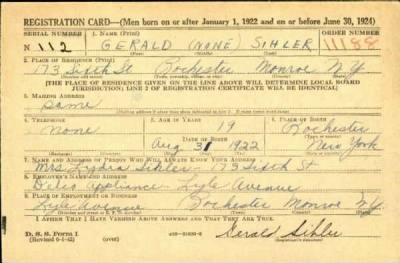 REGISTRATION CARD—(Men born on or after January 1, 1922 and on or before June 30, 1924)
SERIAL NUMBER 1. NAME (Print) ORDER NUMBER
N 112 GERALD (NONE) SIHLER 11188
2. PLACE OF RESIDENCE (Print)
173 Sixth St Rochester Monroe N.Y.
[THE PLACE OF RESIDENCE GIVEN ON THE LINE ABOVE WILL DETERMINE LOCAL BOARD
JURISDICTION; LINE 2 OF REGISTRATION CERTIFICATE WILL BE IDENTICAL]
3. MAILING ADDRESS
Same
4. TELEPHONE 5. AGE IN YEARS 6. PLACE OF BIRTH
None 19 Rochester
DATE OF BIRTH
Aug 31 1922 New York
7. NAME AND ADDRESS OF PERSON WHO WILL ALWAYS KNOW YOUR ADDRESS
Mrs Lydia Sihler - 173 Sixth St
8. EMPLOYER'S NAME AND ADDRESS
Appliance - Lyle Avenue
9. PLACE OF EMPLOYMENT OR BUSINESS
Lyle Avenue Rochester Monroe N.Y.
I AFFIRM THAT I HAVE VERIFIED ABOVE ANSWERS AND THAT THEY ARE TRUE.
D. S. S. Form 1
(Revised 6-1-42) (over) Gerald Sihler